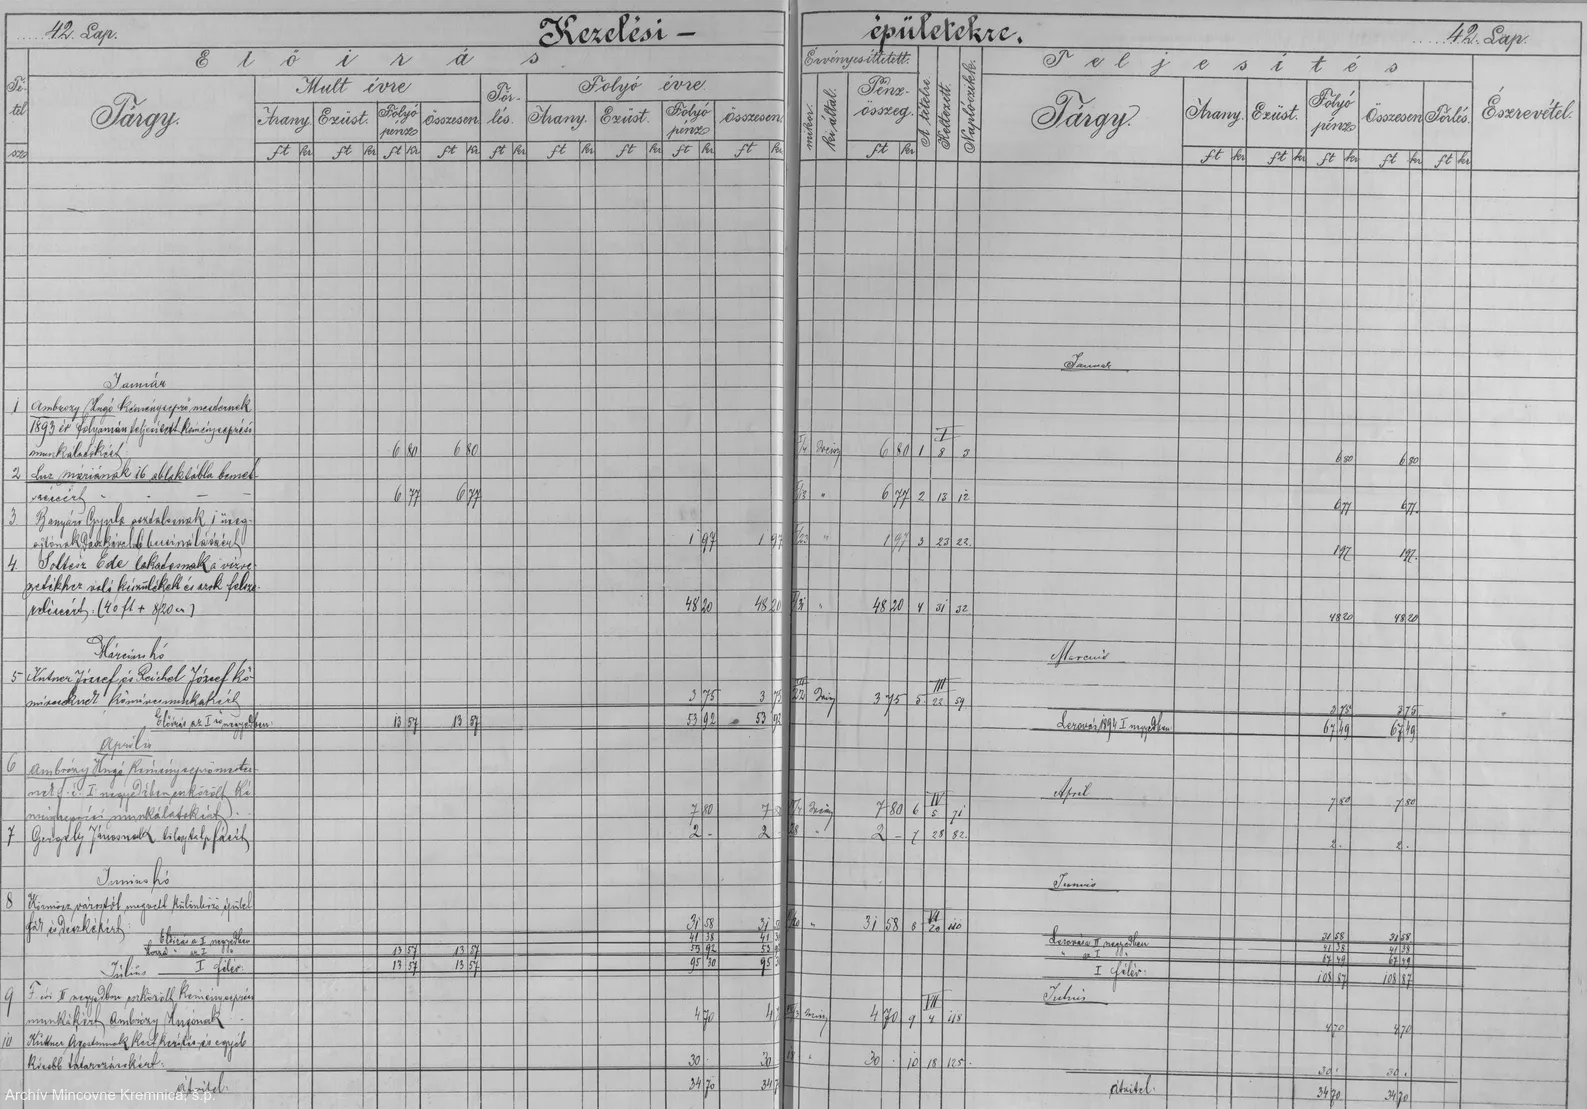 42. Lap.
Kezelési –
épületekre.
42. Lap.
Előirás
Érvényesittetett.
Teljesités
Tétel
sz.
Tárgy.
Mult évre
Törlés.
Folyó évre
mikor.
ki által.
Pénzösszeg.
A tételre
Keltezett.
Naplóczikk.
Tárgy.
Arany.
Ezüst.
Folyó pénz
Összesen
Törlés.
Észrevétel.
Arany.
Ezüst.
Folyó pénz
Összesen
Arany.
Ezüst.
Folyó pénz
Összesen
ft kr ft kr ft kr ft kr kr ft kr ft kr ft kr ft kr
ft kr
ft kr ft kr ft kr ft kr ft kr
Január
Január
1 Ambrózy Hugó kéményseprő mesternek
1893 év folyamán teljesitett kéményseprési
munkálatokért. 6 80 6 80 6 80 1 8 3 6 80 6 80
2 Luz máriának 16 ablaktábla bemet-
széseért 6 77 6 77 " 6 77 2 13 12 6 77 6 77
3 Gyula asztalosnak 1
1 97 1 97 " 1 97 3 23 22 1 97 1 97
4 Soltész Ede lakatosnak a vizve-
zetékhez való készülékek és azok felsze-
reléseért. (40 ft + 8/20 kr) 48 20 48 20 " 48 20 4 31 32 48 20 48 20
Március hó
Marcius
5 József és Reichel József kő-
műveseknek kőművesmunkákért 3 75 3 75 3 75 5 22 59 3 75 3 75
Előirás az I ső negyedben: 13 57 13 57 53 92 53 92 Lerovás 1894 I negyedben 67 49 67 49
Április
April
6 Ambrózy Hugó kéményseprőmester-
nek f. é. I negyedében eszközölt ké-
ményseprési munkálatokért 7 80 7 80 7 80 6 5 71 7 80 7 80
7 Gergely Jánosnak talpfáért 2 - 2 " 2 - 7 28 82 2 - 2 -
Junius hó
Junius
8 Körmöcz várostól megvett különböző épület
fák és deszkákért: 31 58 31 " 31 58 8 20 110 31 58 31 58
Előirás a II negyedben 41 38 41 Lerovás a II negyedben 41 38 41 38
az I " 13 57 13 57 53 92 53 " az I " 67 49 67 49
I félév: 13 57 13 57 95 30 95 I félév: 108 87 108 87
Július
Julius
9 F. évi II negyedben eszközölt kéményseprési
munkákért Ambrózy Hugónak 4 70 4 4 70 9 4 118 4 70 4 70
10
később 30 - 30 " 30 - 10 18 125 30 - 30 -
átvitel: 34 70 34 átvitel: 34 70 34 70
Archív Mincovne Kremnica, š.p.